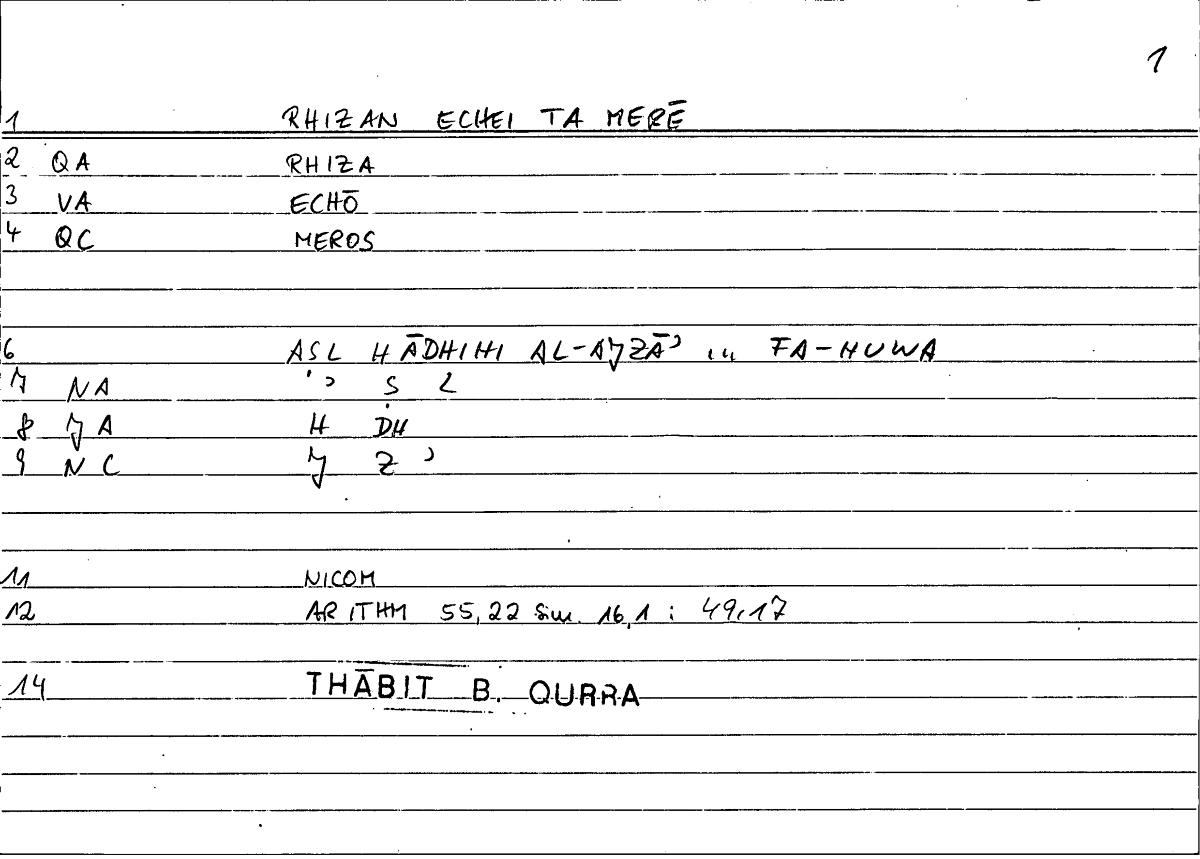 1
1 RHIZAN ECHEI TA MERĒ
2 QA RHIZA
3 VA ECHŌ
4 QC MEROS
6 ASL HĀDHIHI AL-AJZĀʾ ... FA-HUWA
7 NA ʾ Ṣ L
8 JA H DH
9 NC J Z ʾ
11 NICOM
12 ARITHM 55,22 Sim. 16,1 : 49,17
14 THĀBIT B. QURRA